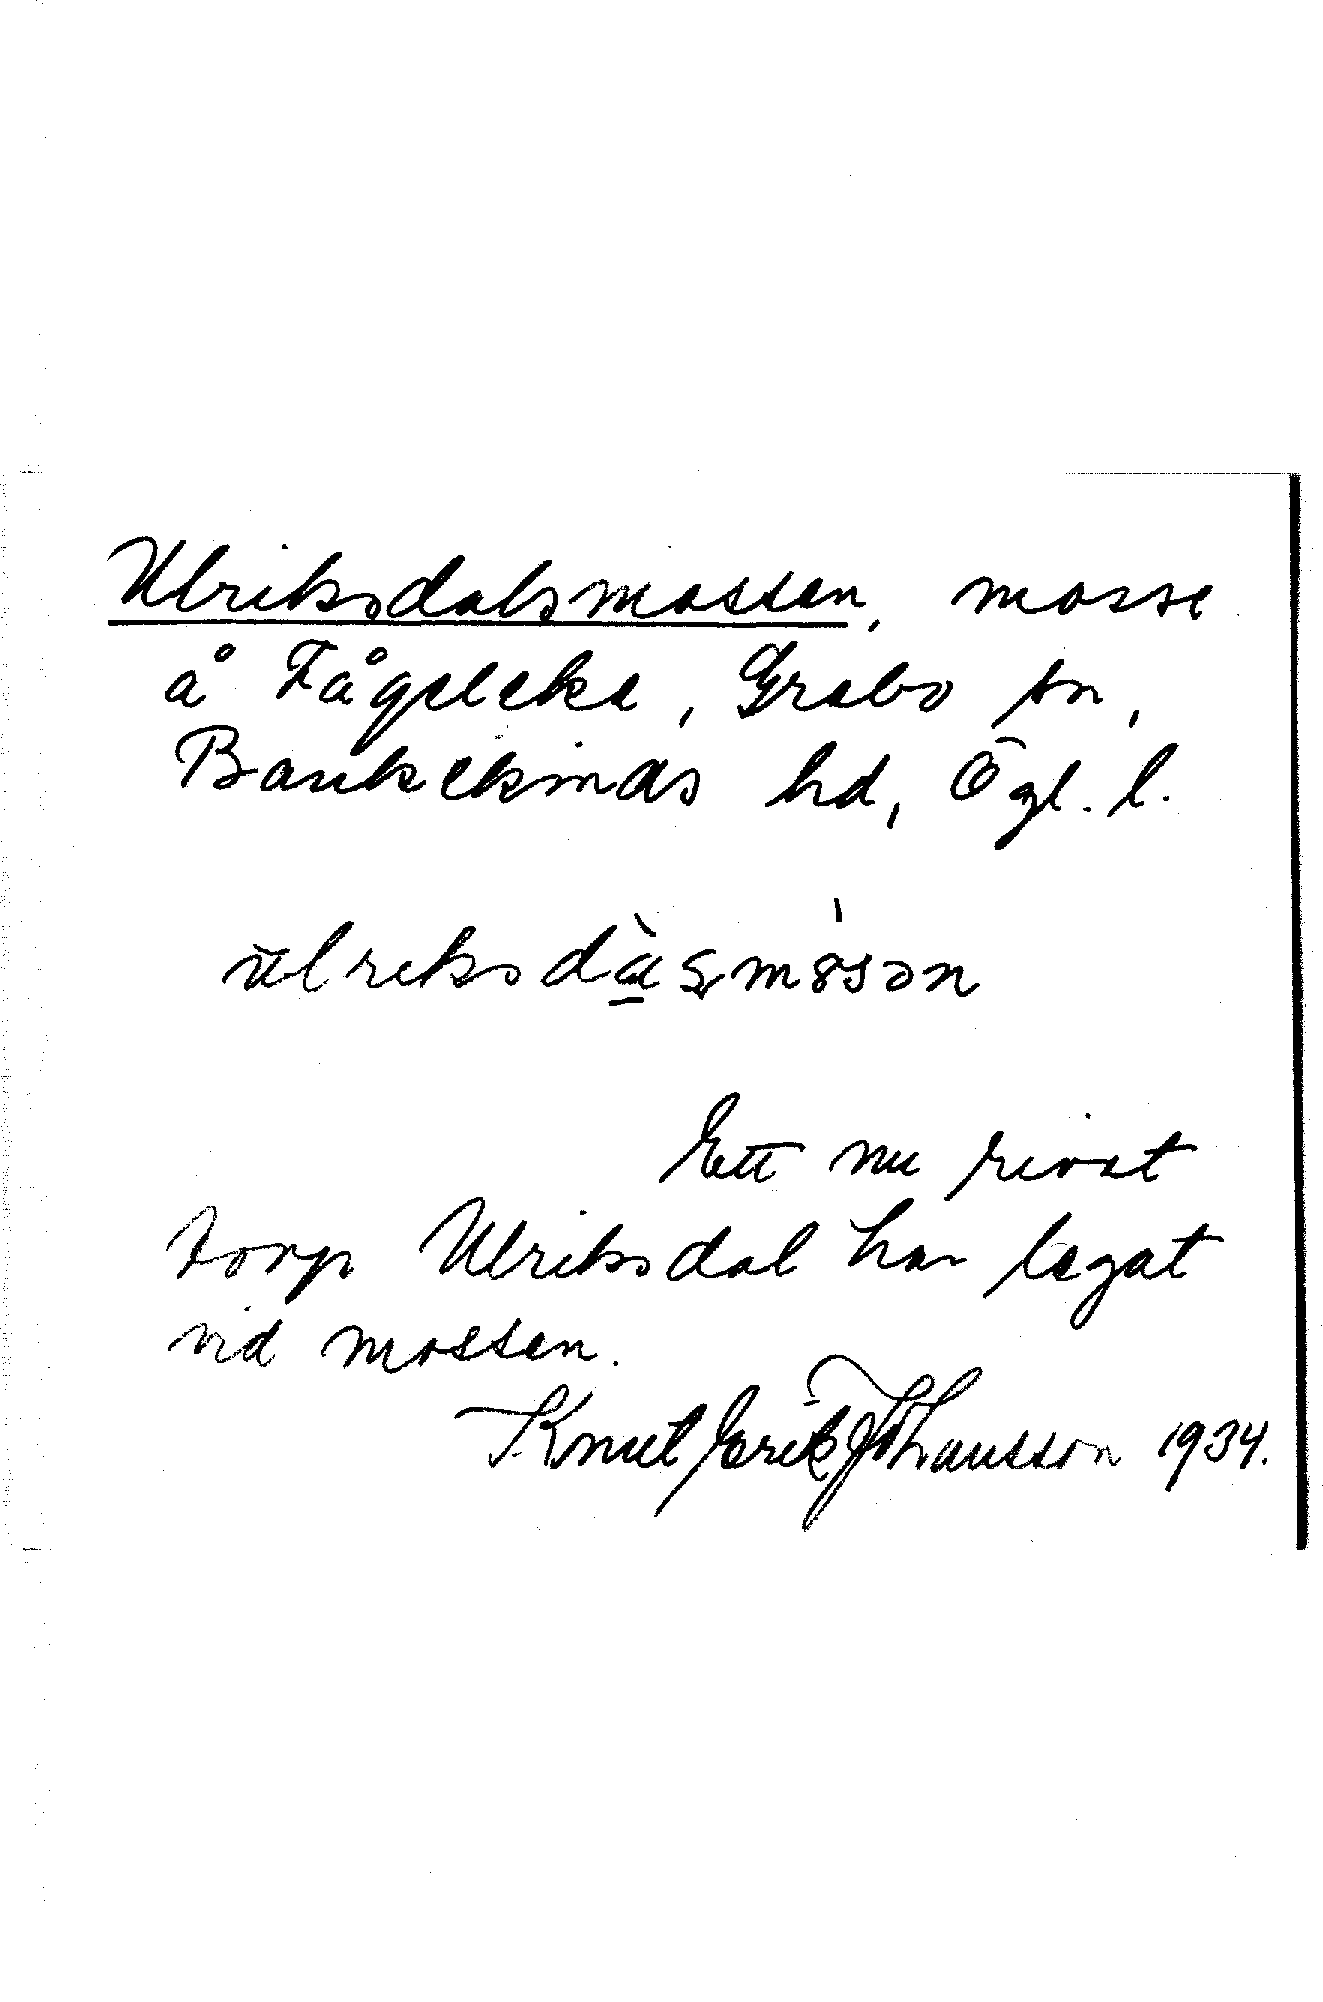 Ulriksdalsmossen, mosse
å Fågeleke, Grebo sn,
Bankekinds hd, Ögl. l.
Ett nu rivet
torp Ulriksdal har legat
vid mossen.
Knut Erik Johansson 1934.